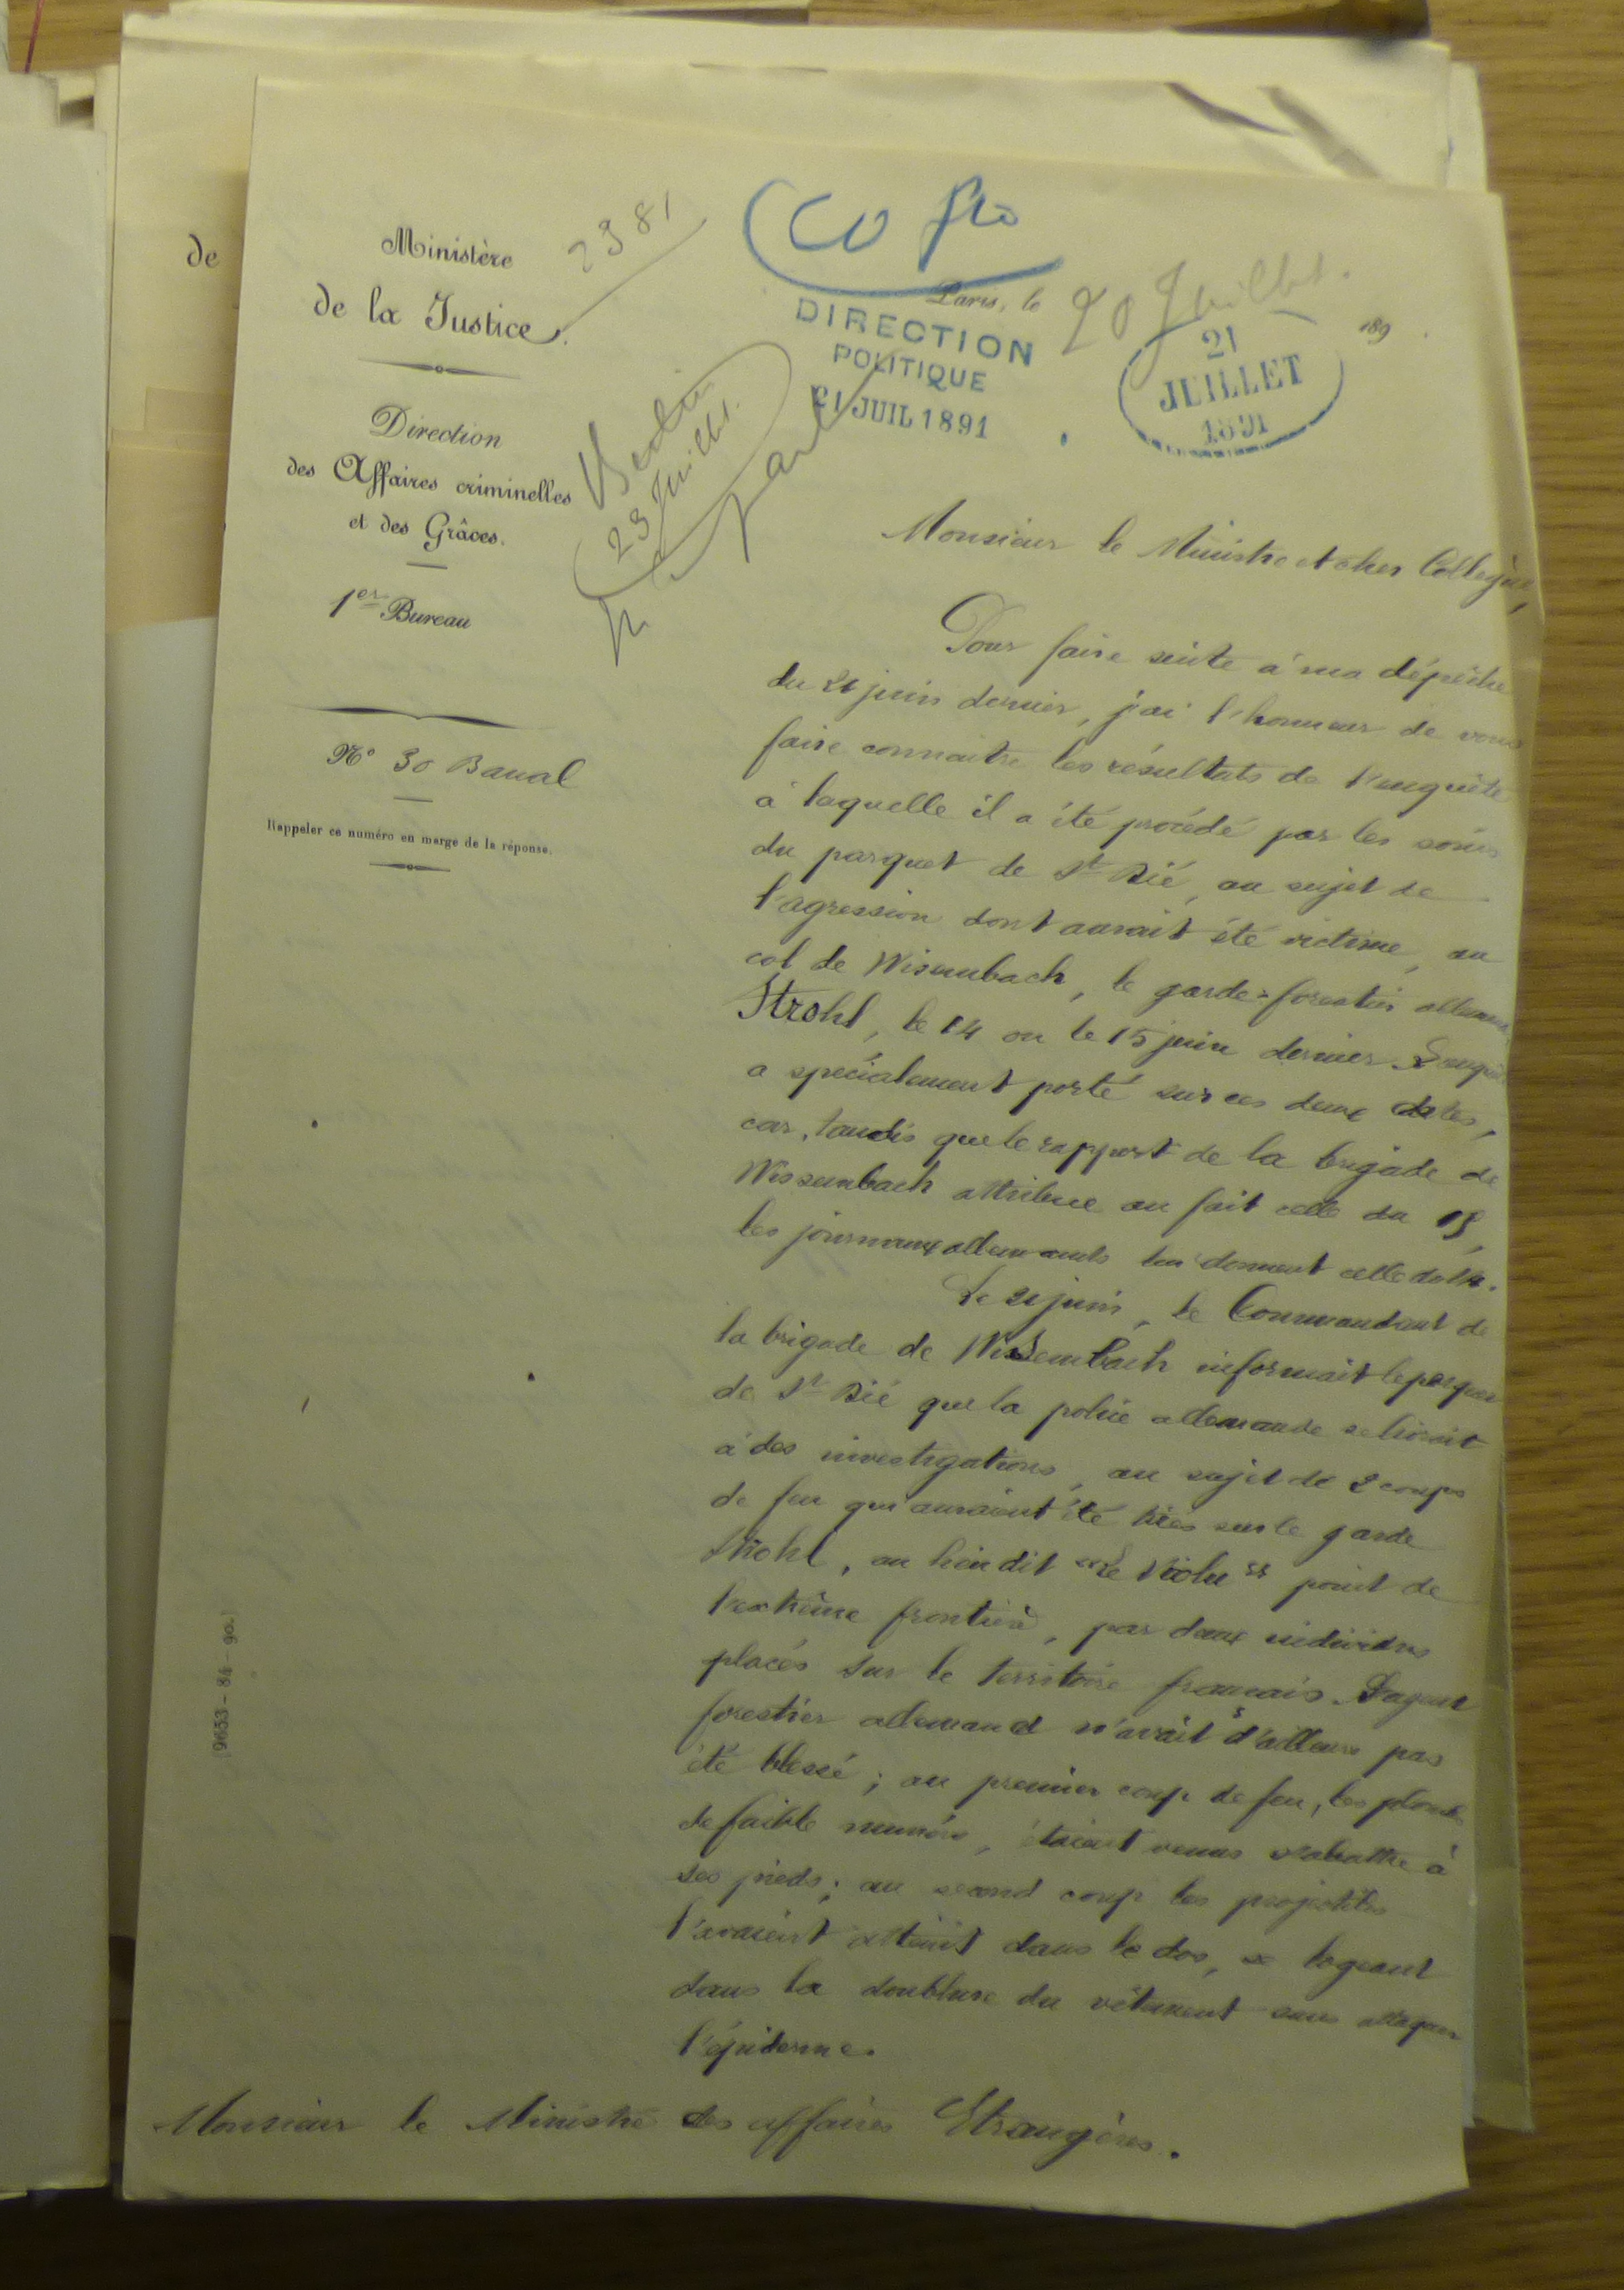 de
Ministère
de la Justice.
2381
Direction
des Affaires criminelles
et des Grâces.
1er Bureau
N° 30 Banal
Rappeler ce numéro en marge de la réponse.
Paris, le 20 Juillet. 189
DIRECTION
POLITIQUE
21 JUIL 1891
21
JUILLET
1891
Berlin
23 Juillet.
Monsieur le Ministre et cher Collègue,
Pour faire suite à ma dépêche
du 21 juin dernier, j'ai l'honneur de vous
faire connaitre les résultats de l'enquête
à laquelle il a été procédé par les soins
du parquet de St Dié, au sujet de
l'agression dont aurait été victime, au
col de Wisembach, le garde-forestier allemand
Strohl, le 14 ou le 15 juin dernier. L'enquête
a spécialement porté sur ces deux dates,
car, tandis que le rapport de la brigade de
Wissembach attribue au fait celle du 15,
les journaux allemands lui donnent celle du 14.
Le 21 juin, le Commandant de
la brigade de Wissembach informait le parquet
de St Dié que la police allemande se livrait
à des investigations, au sujet de 2 coups
de feu qui auraient été tirés sur le garde
Strohl, au lieu dit "Le Violu" point de
l'extrême frontière, par deux individus
placés sur le territoire français. L'agent
forestier allemand n'avait d'ailleurs pas
été blessé; au premier coup de feu, les plombs
de faible numéro, étaient venus s'abattre à
ses pieds; au second coup les projectiles
l'avaient atteint dans le dos, se logeant
dans la doublure du vêtement sans attaquer
l'épiderme.
Monsieur le Ministre des affaires Etrangères.
(9653-84-90.)